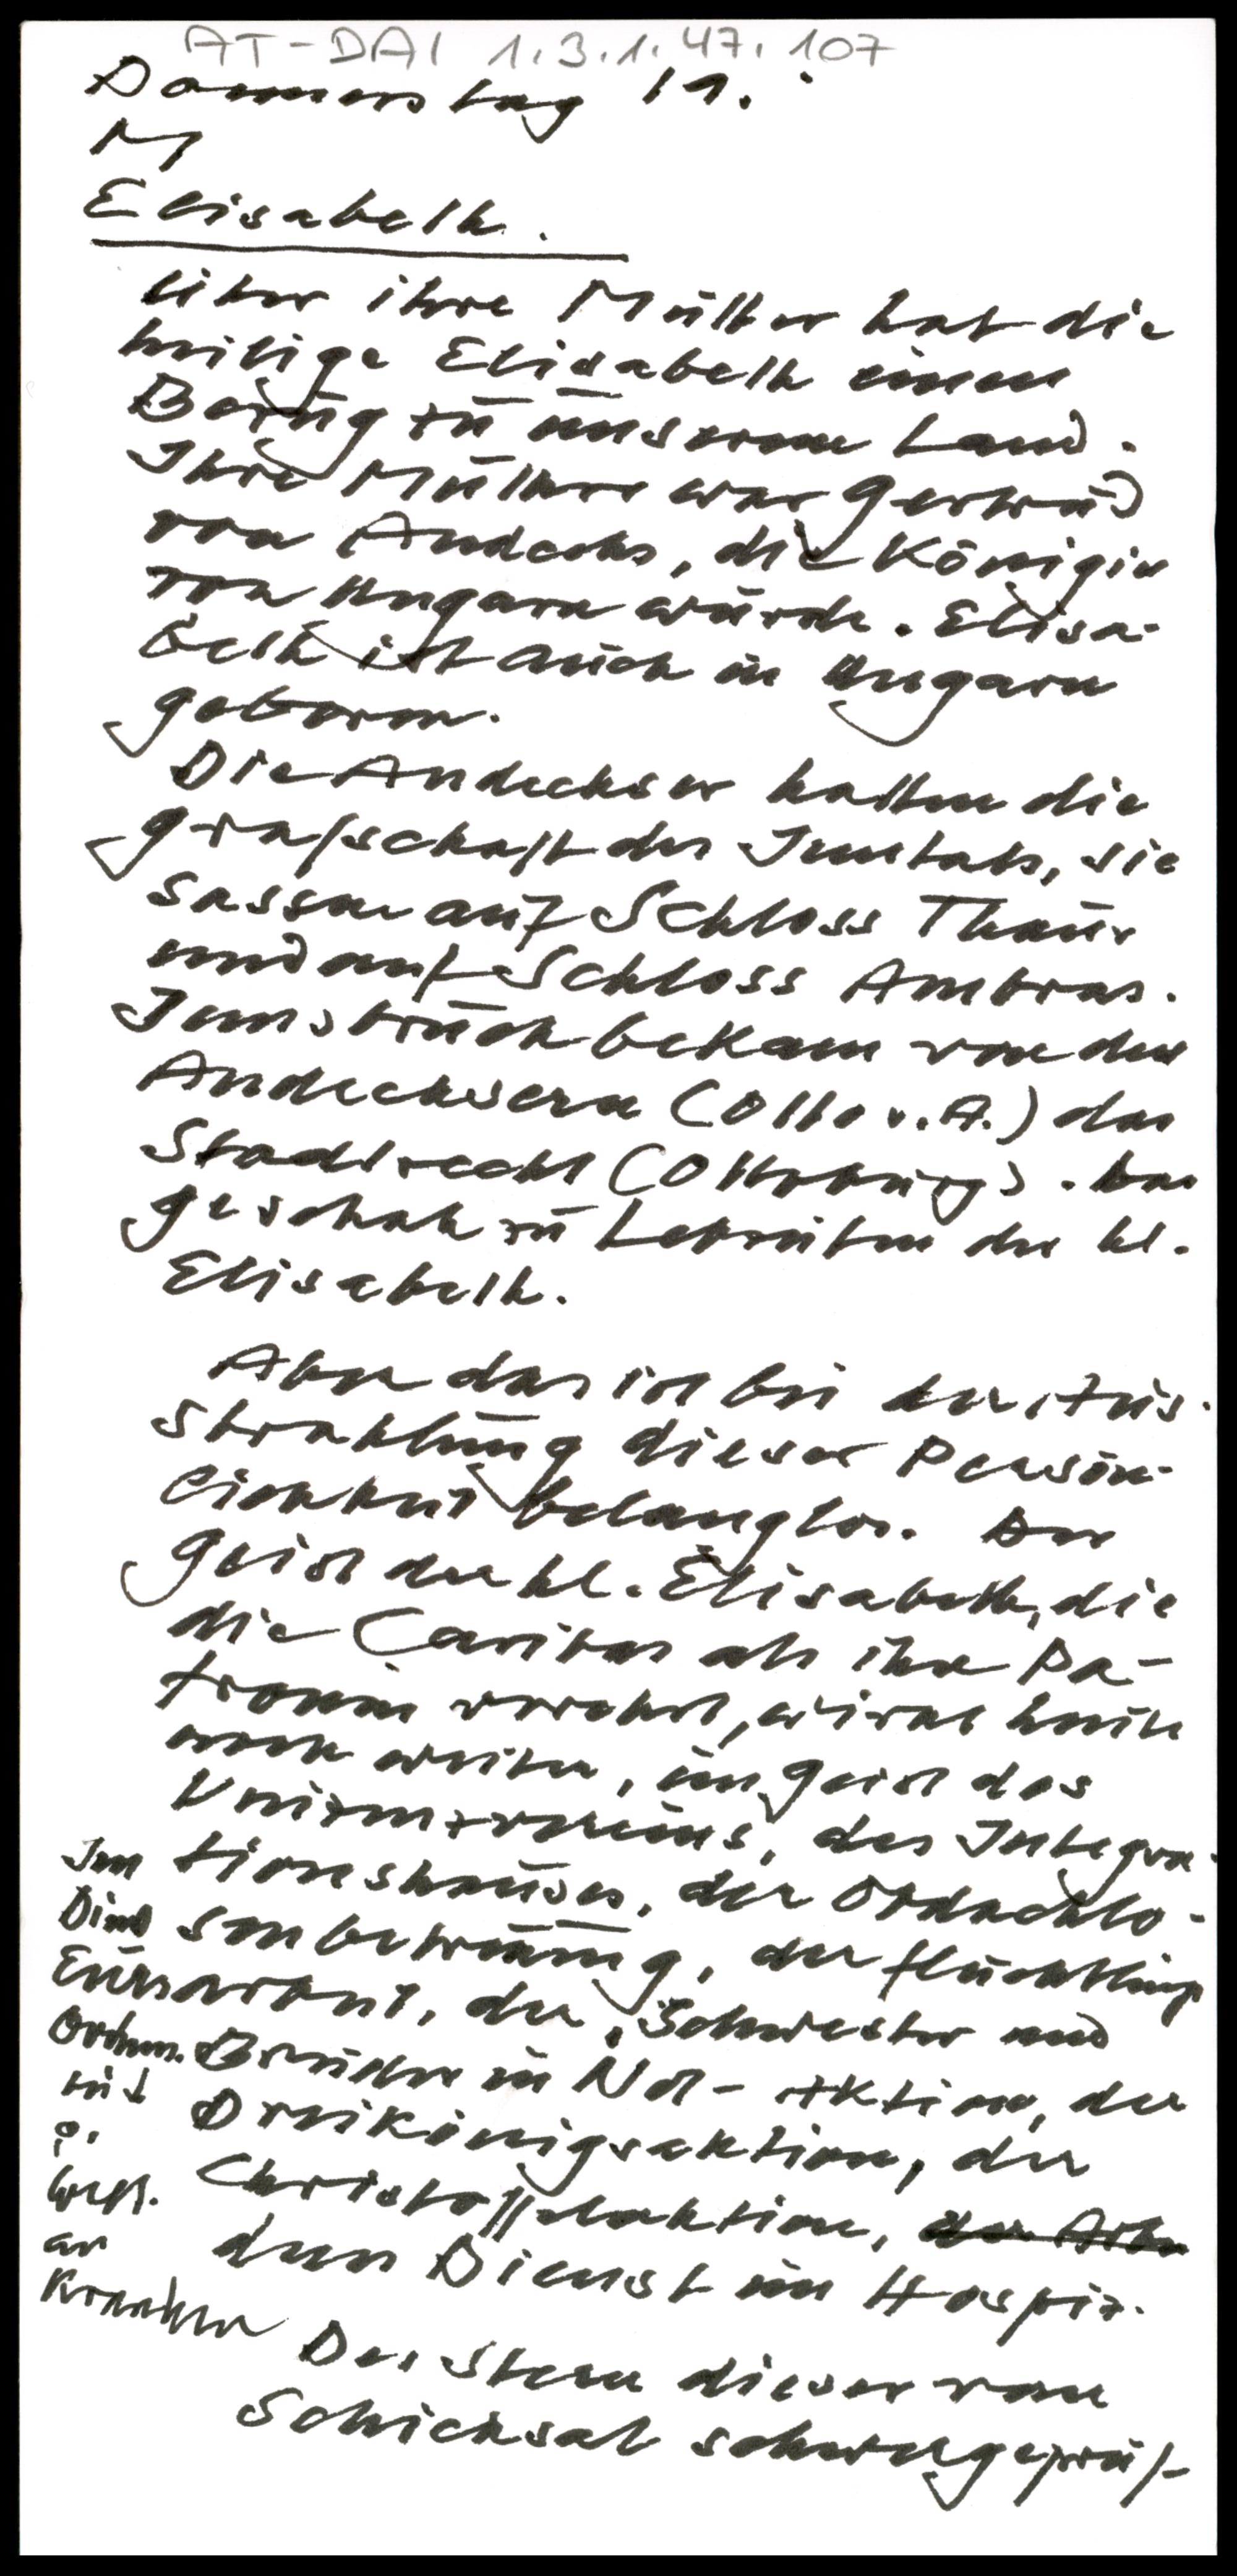 AT-DAI 1.3.1.47.107
Donnerstag 19.
M
Elisabeth.
Über ihre Mutter hat die
heilige Elisabeth einen
Bezug zu unserem Land.
Ihre Mutter war Gertrud
von Andechs, die Königin
von Ungarn wurde. Elisa-
beth ist auch in Ungarn
geboren.
Die Andechser hatten die
Grafschaft des Inntals, sie
sassen auf Schloss Thaur
und auf Schloss Ambras.
Innsbruck bekam von den
Andechsern (Otto v. A.) das
Stadtrecht (Ottoburg). Das
geschah zu Lebzeiten der hl.
Elisabeth.
Aber das ist bei der Aus-
strahlung dieser Persön-
lichkeit belanglos. Der
Geist der hl. Elisabeth, die
die Caritas als ihre Pa-
tronin verehrt, wirkt heute
noch weiter, im Geist des
Vinzenzvereins, des Integra-
tionshauses, der Obdachlo-
senbetreuung, der Flüchtlings
arbeit, der "Schwester und
Bruder in Not-Aktion, der
Dreikönigsaktion, der
Christoffelaktion, der Arbe
dem Dienst im Hospiz.
Im
Dienst
Ordnen.
an
Kranken
Der Stern dieser vom
Schicksal schwergeprüf-